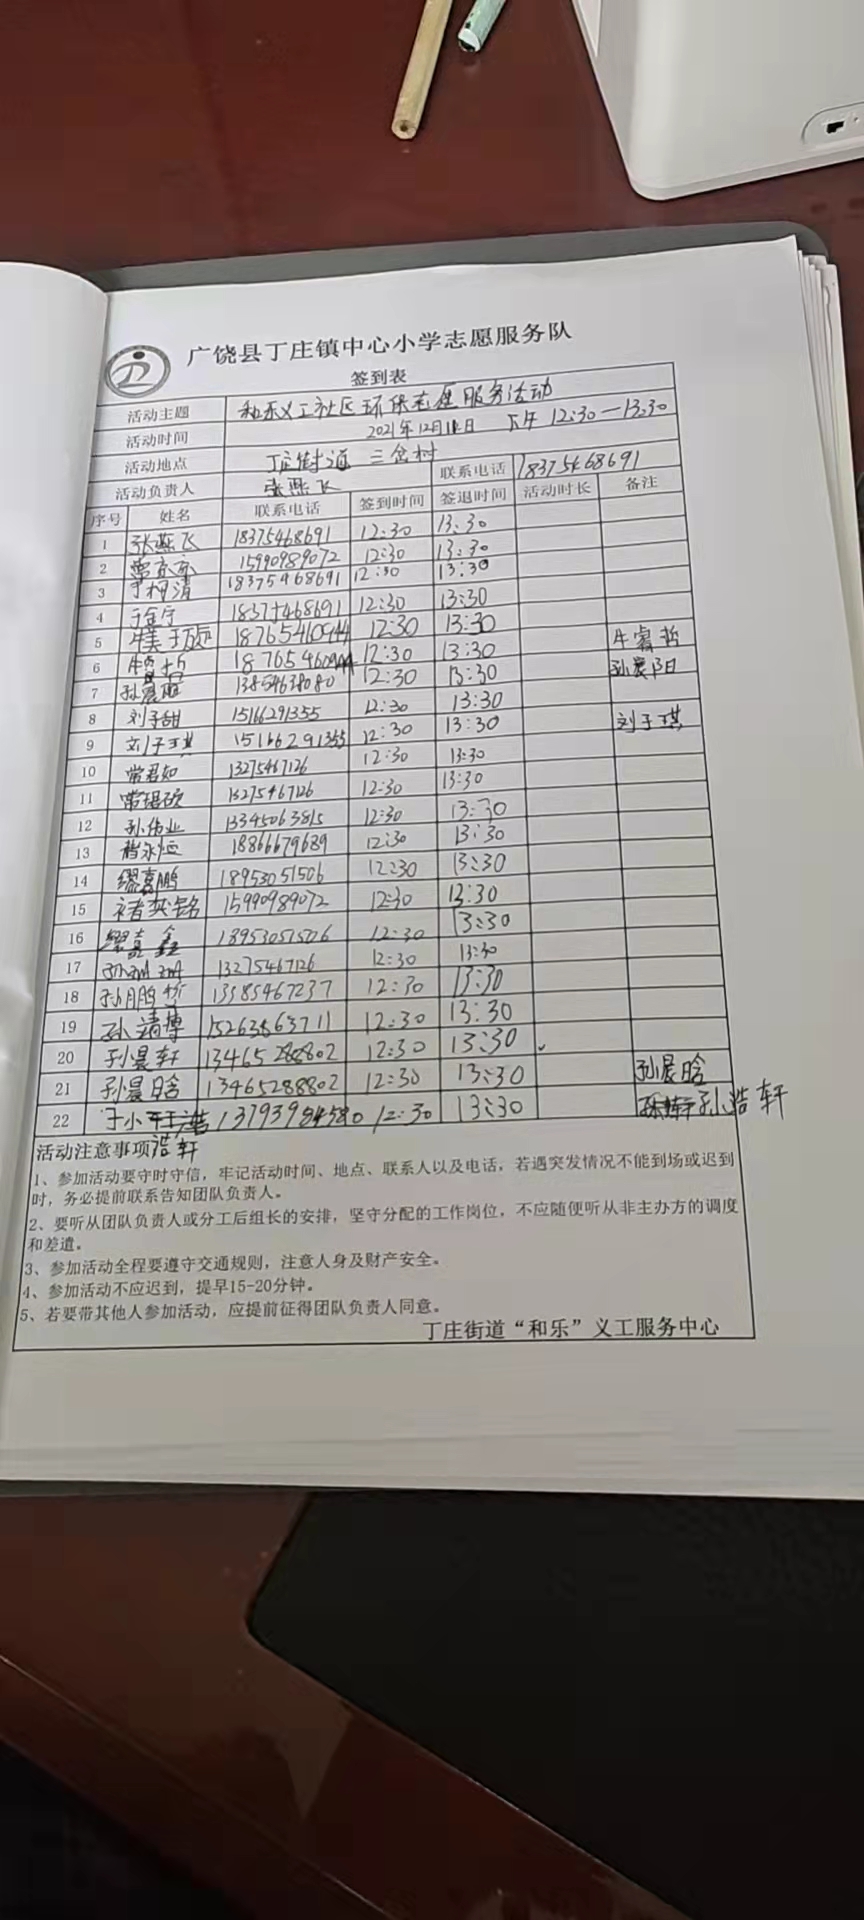 广饶县丁庄镇中心小学志愿服务队
签到表
活动主题 和乐义工社区环保志愿服务活动
活动时间 2021年12月11日 下午 12:30—13:30
活动地点 丁庄街道 三岔村
活动负责人 张燕飞 联系电话 18375468691
序号 姓名 联系电话 签到时间 签退时间 活动时长 备注
1 张燕飞 18375468691 12:30 13:30
2 15990989072 12:30 13:30
3 于柯清 18375468691 12:30 13:30
4 于金宁 12:30 13:30
5 12:30 13:30
6 12:30 13:30 牛睿哲
7 孙晨阳 13854638080 12:30 13:30 孙晨阳
8 刘子甜 15166291355 12:30 13:30
9 刘子琪 15166291355 12:30 13:30 刘子琪
10 常君如 13275467126 12:30 13:30
11 常琨硕 13275467126 12:30 13:30
12 孙伟业 13345063815 12:30 13:30
13 永恒 18866679689 12:30 13:30
14 缪嘉鹏 18953051506 12:30 13:30
15 褚 铭 15990989072 12:30 13:30
16 缪嘉鑫 18953051506 12:30 13:30
17 孙珊珊 13275467126 12:30 13:30
18 孙鹏 12:30 13:30
19 孙靖博 15263863711 12:30 13:30
20 孙晨轩 13465288802 12:30 13:30
21 孙晨晗 13465288802 12:30 13:30 孙晨晗
22 12:30 13:30 孙浩轩
活动注意事项 浩轩
1、参加活动要守时守信，牢记活动时间、地点、联系人以及电话，若遇突发情况不能到场或迟到
时，务必提前联系告知团队负责人。
2、要听从团队负责人或分工后组长的安排，坚守分配的工作岗位，不应随便听从非主办方的调度
和差遣。
3、参加活动全程要遵守交通规则，注意人身及财产安全。
4、参加活动不应迟到，提早15-20分钟。
5、若要带其他人参加活动，应提前征得团队负责人同意。
丁庄街道“和乐”义工服务中心